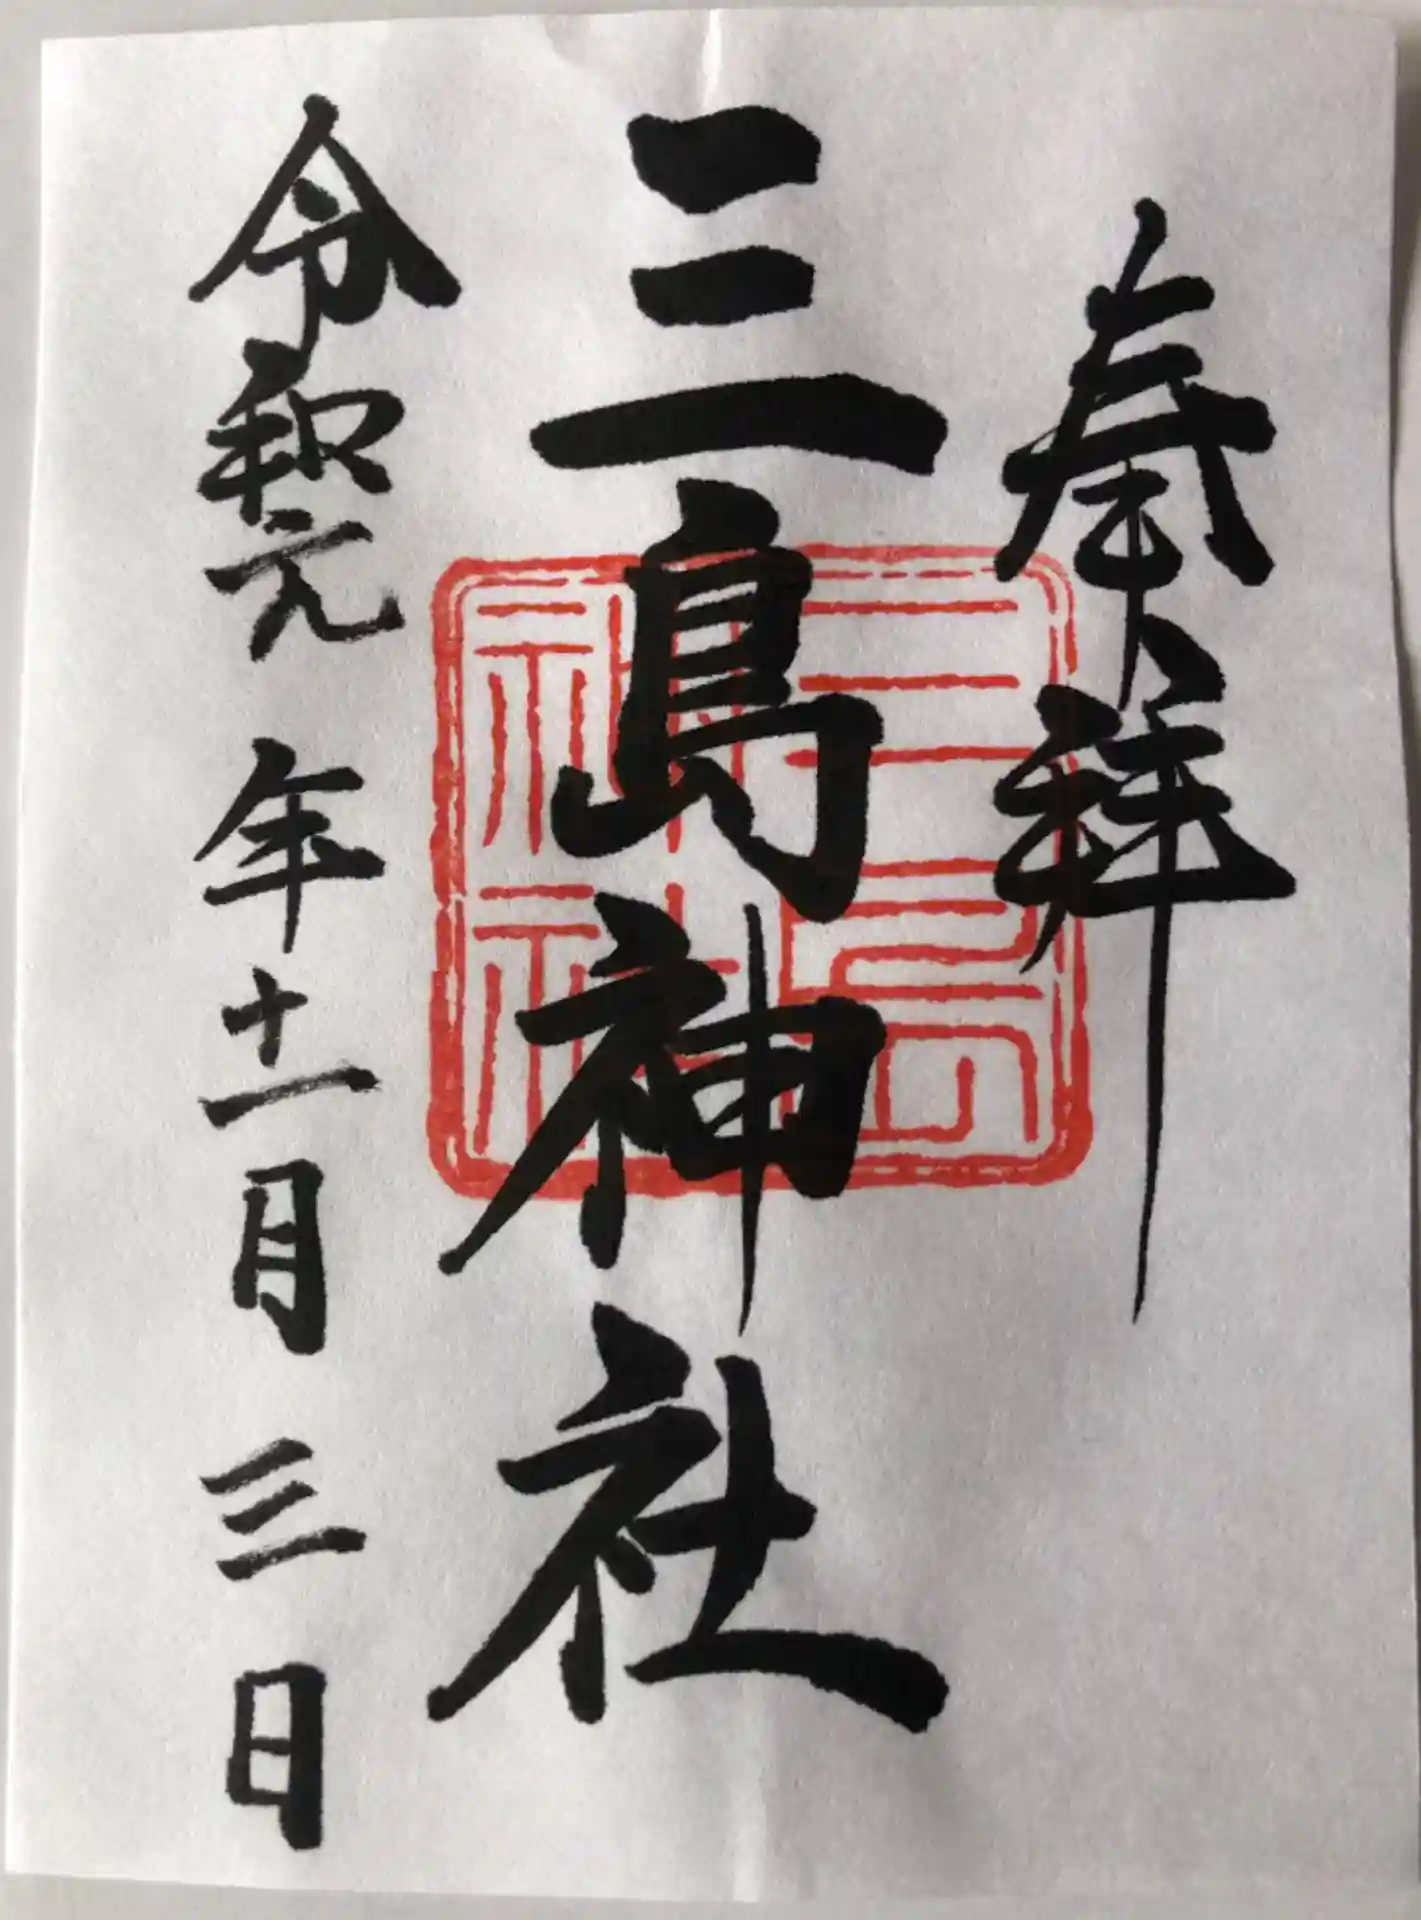 奉拝
三島神社
三島神社
令和元年十一月三日